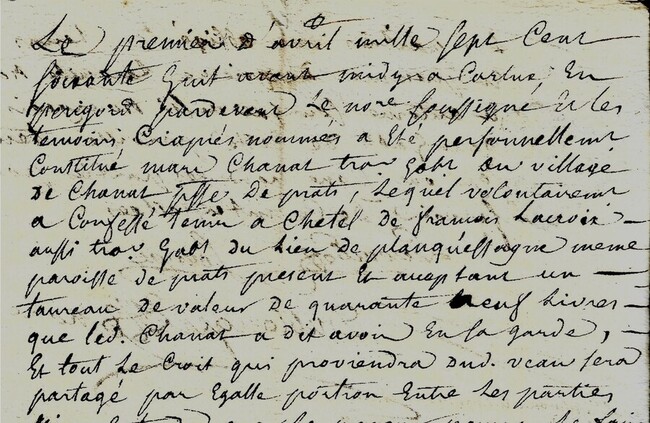 Le premier d'avril mille sept cent
soixante huit avant midy a Carlux En
perigord pardevant Le nore soussigné Et les
temoins Ciaprés nommés a Eté personnellemt
Constitué marc Chanat trav habt du village
De Chanat psse De prats, Lequel volontairemt
a Confessé tenir a Chetel De francois Lacroix
aussi trav habt du Lieu de planquessagne meme
paroisse de prats present Et aceptant un
taureau De valeur De quarante neuf Livres
que led. Chanat a dit avoir En sa garde,
Et tout Le Croit qui proviendra dud. veau sera
partagé par Egalle portion Entre Les parties